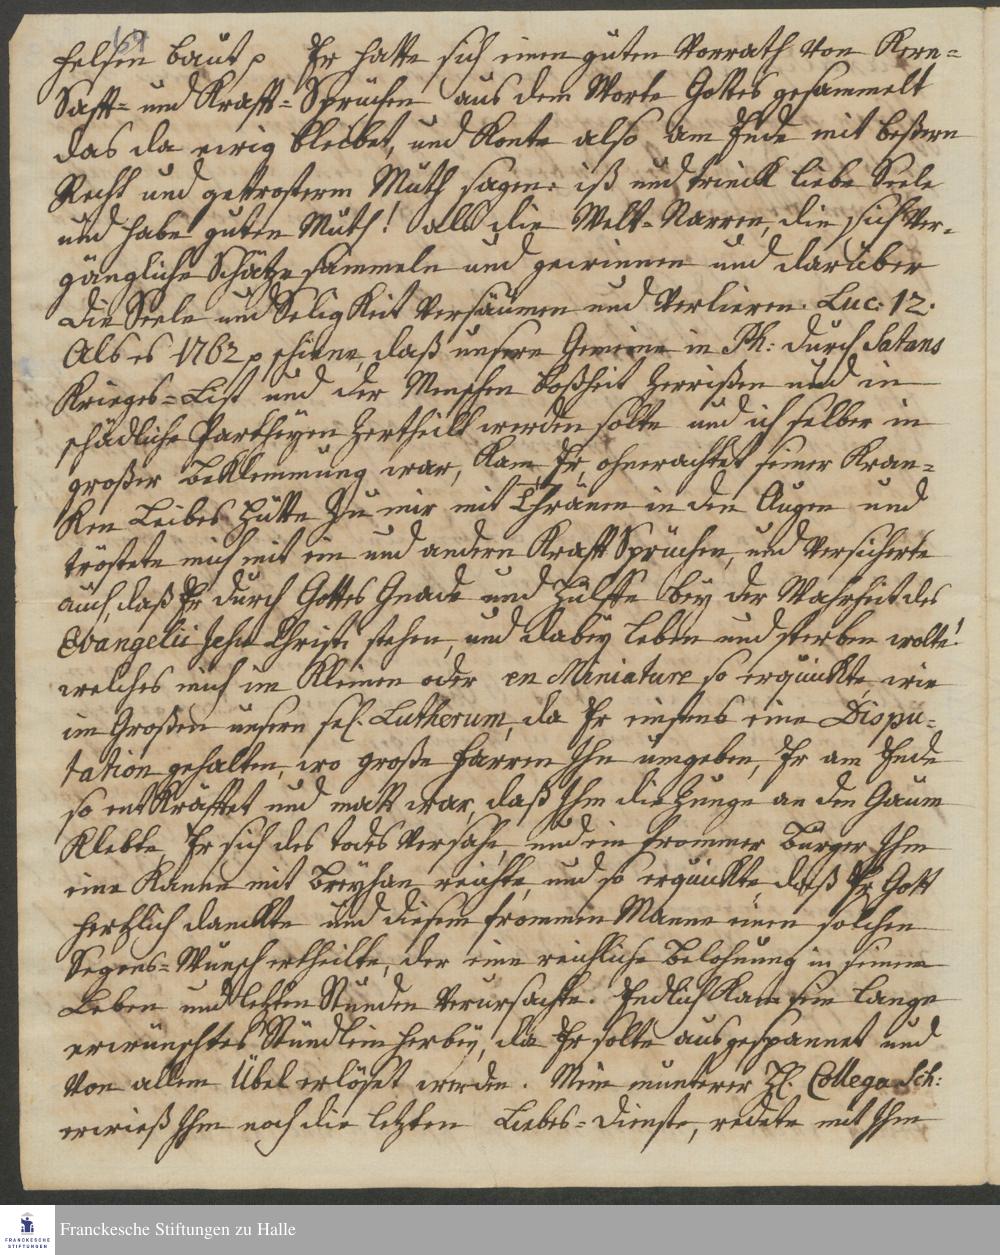 64
Felsen baut p Er hatte sich einen guten Vorrath von Kern-
Safft- und Krafft-Sprüchen aus dem Worte Gottes gesammelt
das da ewig bleibet, und Konte also am Ende mit beßerm
Recht und getrosterm Muth sagen: iß und trinck liebe Seele
und habe guten Muth! als die Welt-Narren, die sich ver-
gängliche Schätze sammeln und gewinnen und darüber
die Seele und Seligkeit versäumen und verlieren. Luc: 12.
Als es 1762 p schiene, daß unsere Gemeine in Ph: durch Satans
Krieges-List und der Menschen Boßheit zerrißen und in
schädliche Partheyen zertheilt werden solte und ich selber in
großer Beklemmung war, Kam Er, ohnerachtet seiner Kran-
Ken Leibes Hütte zu mir mit Thränen in den Augen und
tröstete mich mit ein und andern Krafft Sprüchen, und versicherte
auch, daß Er durch Gottes Gnade und Hülffe bey der Wahrheit des
Evangelii Jesu Christi stehen, und dabey leben und sterben wolte!
welches mich im Kleinen oder en Miniature so erquickte, wie
im Großen unsern sel. Lutherum, da Er einstens eine Dispu-
tation gehalten, wo große Farren Ihn umgeben, Er am Ende
so entkräfftet und matt war, daß Ihm die Zunge an den Gaum
Klebte, Er sich des todes versahe, und ein frommer Bürger Ihm
eine Kanne mit Breyhan reichte, und so erquickte daß Er Gott
hertzlich danckte und diesem frommen Manne einen solchen
Segens-Wunsch ertheilte, der eine reichliche Belohnung in seinem
Leben und letzten Stunden verursachte. Endlich Kam sein lange
erwünschtes Stündlein herbey, da Er solte ausgespannet und
von allem Übel erlöset werden. Mein munterer H. Collega Sch:
erwieß Ihm noch die letzten Liebes-Dienste, redete mit Ihm
Franckesche Stiftungen zu Halle
FRANCKESCHE
STIFTUNGEN